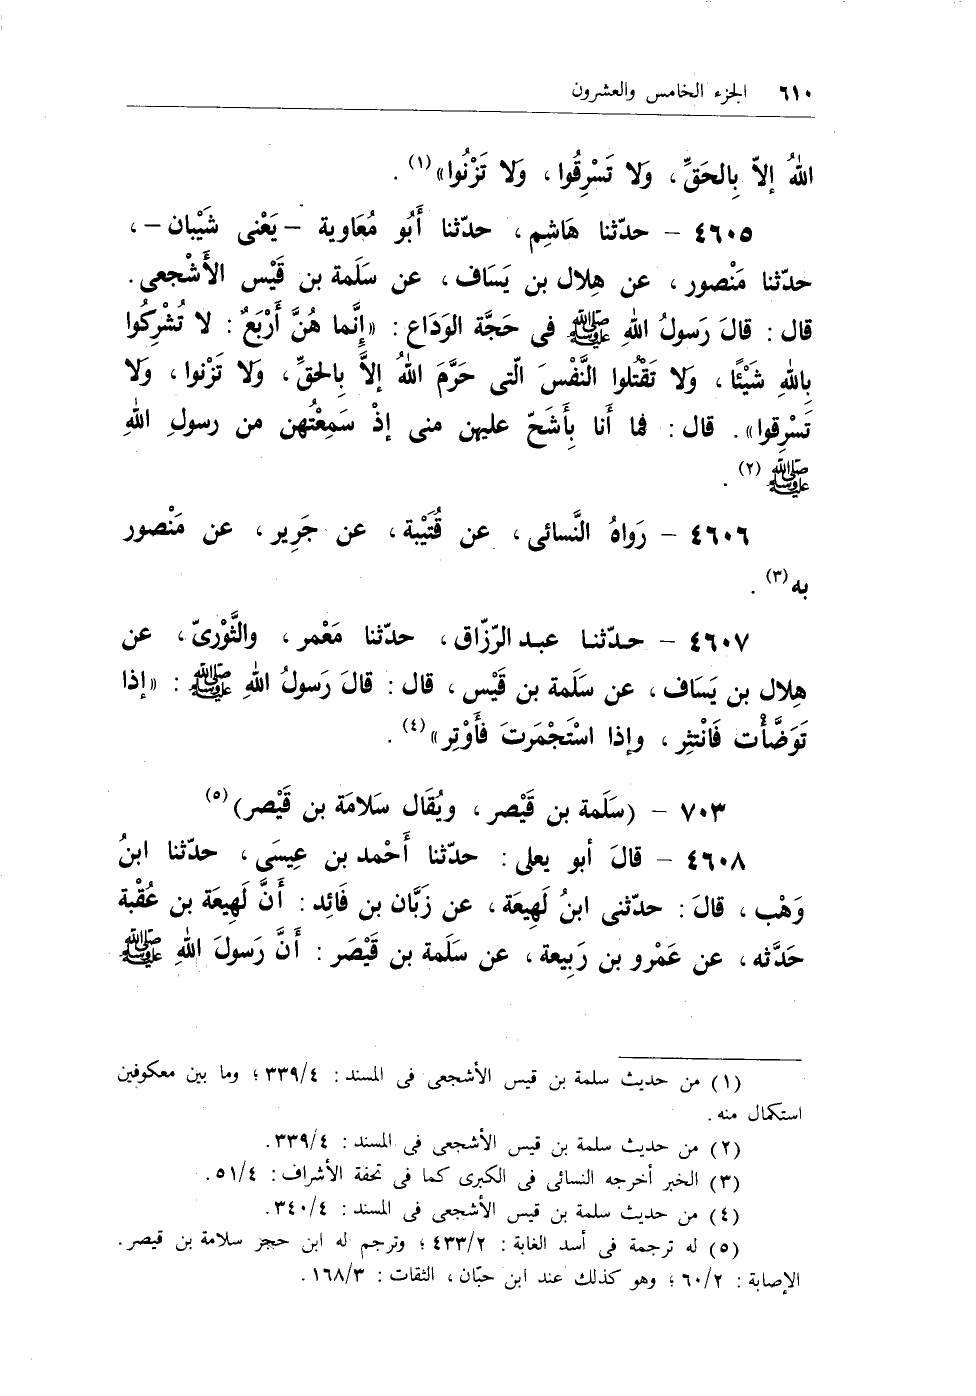 ٦١٠ الجزء الخامس والعشرون
اللهُ إلاّ بِالحَقِّ، وَلا تَسْرِقُوا، وَلا تَزْنُوا»(١).
٤٦٠٥ – حدّثنا هَاشِم، حدّثنا أَبُو مُعَاوية –يَعْنى شَيْبان–،
حدّثنا مَنْصور، عن هِلال بن يَسَاف، عن سَلَمة بن قَيْس الأَشْجعى.
قال: قالَ رَسولُ اللهِ ﷺ فى حَجَّة الوَدَاع: «إِنَّما هُنَّ أَرْبَعٌ: لا تُشْرِكُوا
بِاللهِ شَيْئًا، وَلا تَقْتُلوا النَّفْسَ الّتى حَرَّمَ اللهُ إلاَّ بِالحقِّ، وَلا تَزْنوا، وَلا
تَسْرِقوا». قال: فما أَنا بِأَشَحّ عليهن منى إذْ سَمِعْتُهن من رسولِ اللهِ
ﷺ (٢).
٤٦٠٦ – رَواهُ النَّسائى، عن قُتَيْبة، عن جَرِير، عن مَنْصور
به(٣).
٤٦٠٧ – حدّثنا عبد الرّزّاق، حدّثنا مَعْمر، والثَّوْرىّ، عن
هِلال بن يَسَاف، عن سَلَمة بن قَيْس، قال: قالَ رَسولُ اللهِ ﷺ: «إذا
تَوَضَّأْت فَانْتثِر، وإذا اسْتَجْمَرتَ فأَوْتِر»(٤).
٧٠٣ – (سَلَمة بن قَيْصر، ويُقَال سَلامَة بن قَيْصر)(٥)
٤٦٠٨ – قالَ أبو يعلى: حدّثنا أَحْمد بن عِيسَى، حدّثنا ابنُ
وَهْب، قالَ: حدّثنى ابنُ لَهِيعَة، عن زَبَّان بن فَائِد: أَنَّ لَهِيعَة بن عُقْبة
حَدَّثه، عن عَمْرو بن رَبِيعة، عن سَلَمة بن قَيْصَر: أَنَّ رَسولَ اللهِ ﷺ
(١) من حديث سلمة بن قيس الأشجعى فى المسند: ٣٣٩/٤؛ وما بين معكوفين
استكمال منه.
(٢) من حديث سلمة بن قيس الأشجعى فى المسند: ٣٣٩/٤.
(٣) الخبر أخرجه النسائى فى الكبرى كما فى تحفة الأشراف: ٥١/٤.
(٤) من حديث سلمة بن قيس الأشجعى فى المسند: ٣٤٠/٤.
(٥) له ترجمة فى أسد الغابة: ٤٣٣/٢؛ وترجم له ابن حجر سلامة بن قيصر.
الإصابة: ٦٠/٢؛ وهو كذلك عند ابن حبّان، الثقات: ١٦٨/٣.